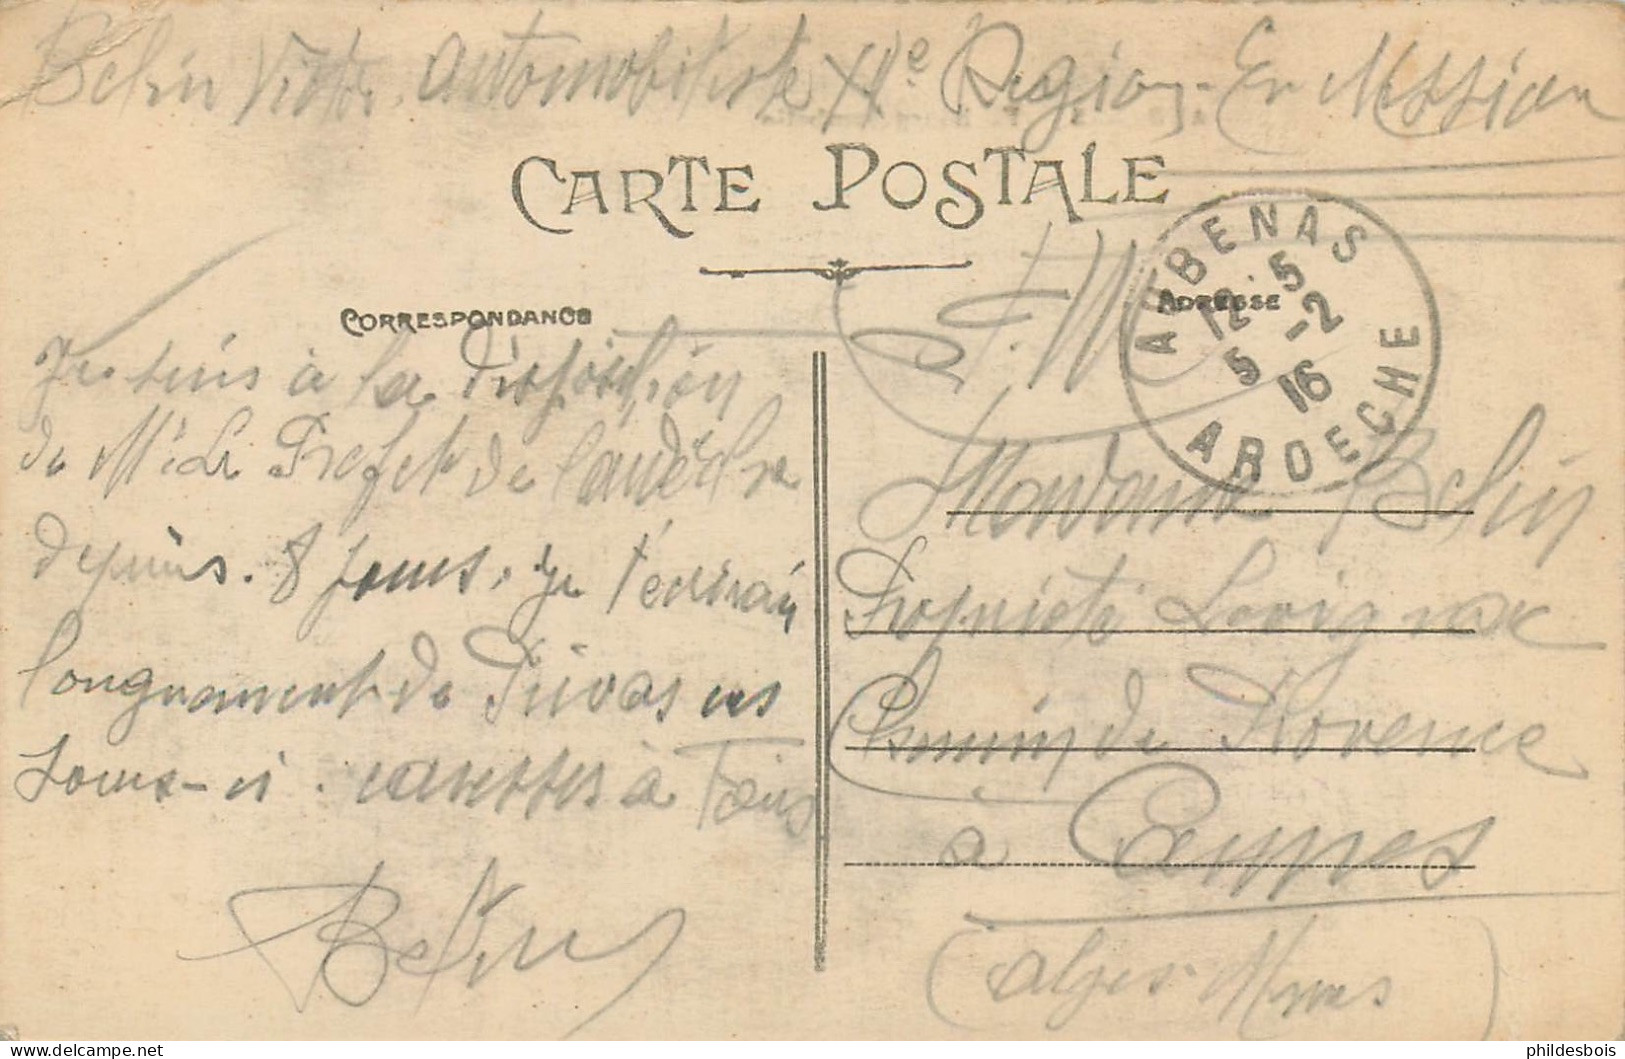 Belin Victor, automobiliste XVe Région - En Mission
CARTE POSTALE
CORRESPONDANCE
ADRESSE
F.M.
AUBENAS
12·5
5 -2
16
ARDECHE
Je suis à la disposition
de Mr Le Préfet de l'Ardèche
depuis 8 jours. Je t'écrirai
longuement de Privas ces
jours-ci. caresses à Tous
Belin
Madame Belin
Propriété Lavignac
Chemin de Provence
à Cannes
(Alpes Mmes)
phildesbois